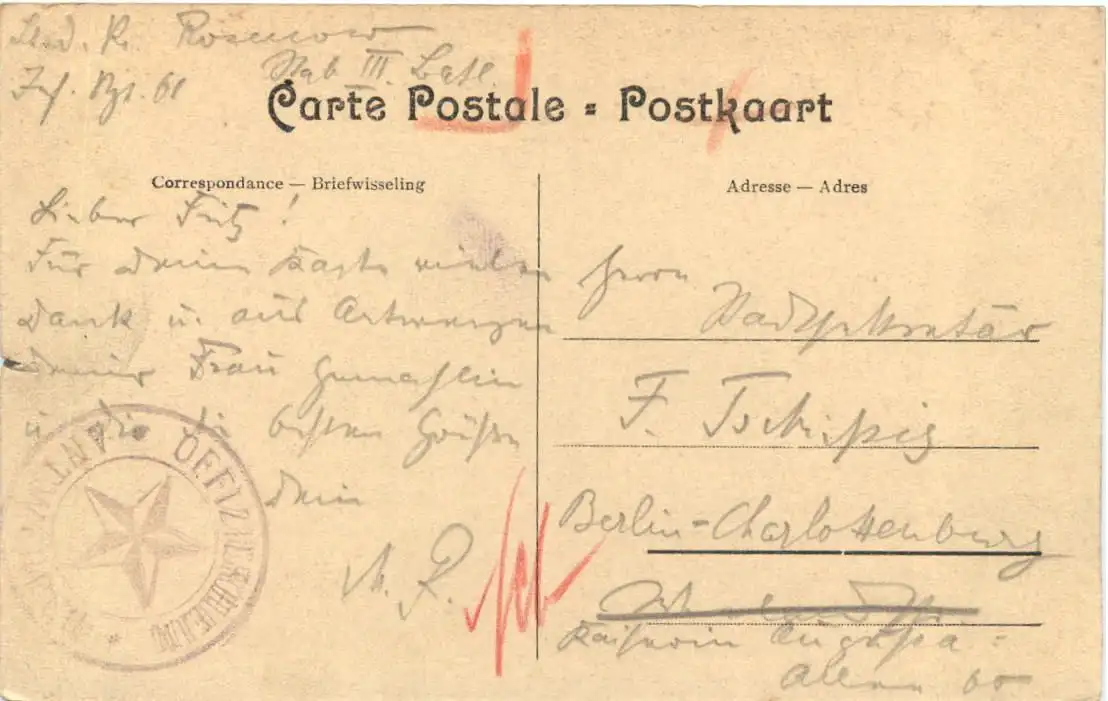 R. Rosenow
Stab III. Batl.
Inf. Rgt. 61
Carte Postale = Postkaart
Correspondance — Briefwisseling
Adresse — Adres
Lieber Fritz!
Für Deine Karte vielen
Dank u. aus Antwerpen
Deiner Frau Gemahlin
u. Dir die besten Grüße
Dein
R.
Herrn
Stadtsekretär
F. Tschipig
Berlin-Charlottenburg
Kaiserin Augusta-
Allee 60
ANTW
OFFIZIER